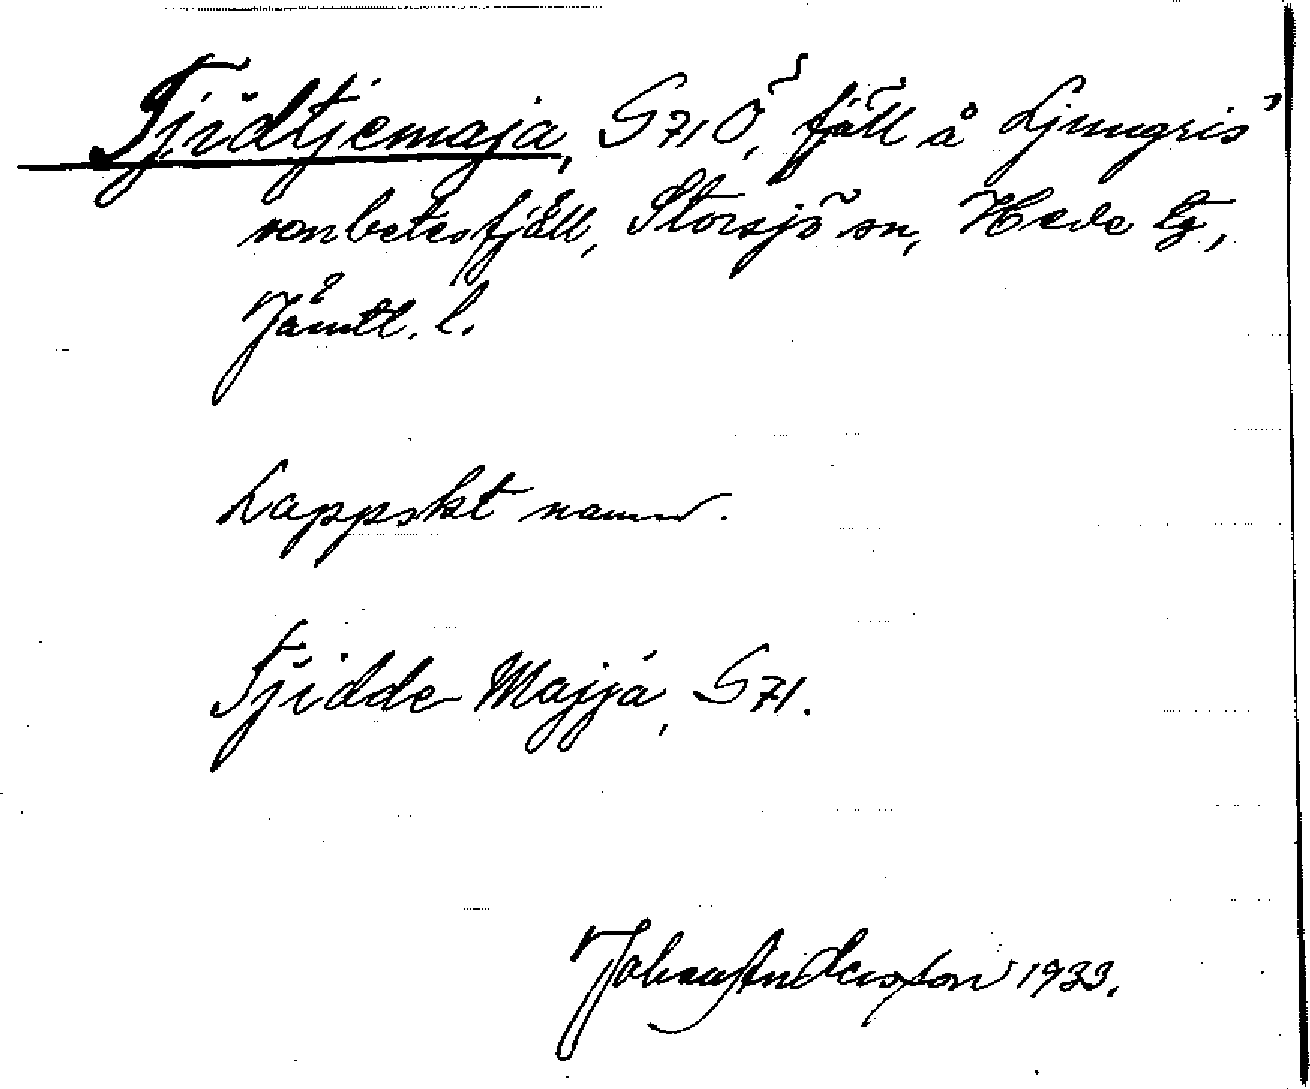 Tjidtjemaja, S71Ö, fjäll å Ljungris
renbetesfjäll, Storsjö sn, Hede tg,
Jämtl. l.
Lappskt namn.
Tjidde Majja, S71.
Johan Andersson 1933.